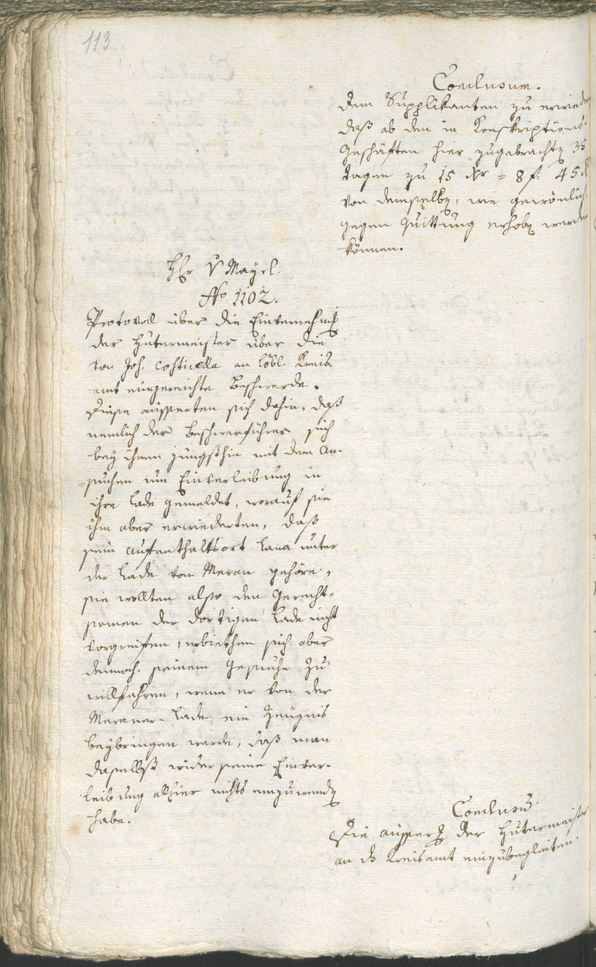 113
Conclusum.
Dem Supplikanten zu erwiedern
daß ab den in Konskriptions-
Geschäften hier zugebrachten 35
Tagen zu 15 Xr = 8 f. 45 Xr
von demselben, wie gewönlich
gegen Quittung erhoben werden
können.
Hr. V Mayrl.
No 1102.
Protocoll über die Einvernehmung
der Hutermeister über die
von Joh. Costinella an löbl. Kreis-
amt eingereichte Beschwerde.
Diese äusserten sich dahin, daß
nemlich der Beschwerführer sich
bey ihnen jüngsthin mit dem An-
suchen um Einverleibung in
ihre Lade gemeldet, worauf sie
ihm aber erwiederten, daß
sein Aufenthaltsort Lana unter
der Lade von Meran gehöre,
sie wollten also den Gerecht-
samen der dortigen Lade nicht
vorgreiffen, erbiethen sich aber
dennoch seinem Gesuche zu
willfahren, wenn er von der
Meraner-Lade ein Zeugnis
beybringen werde, daß man
daselbst wider seine Einver-
leibung alhier nichts einzuwenden
habe.
Conclusum.
Die äusserung der Hutermeister
an das Kreisamt einzubegleiten.